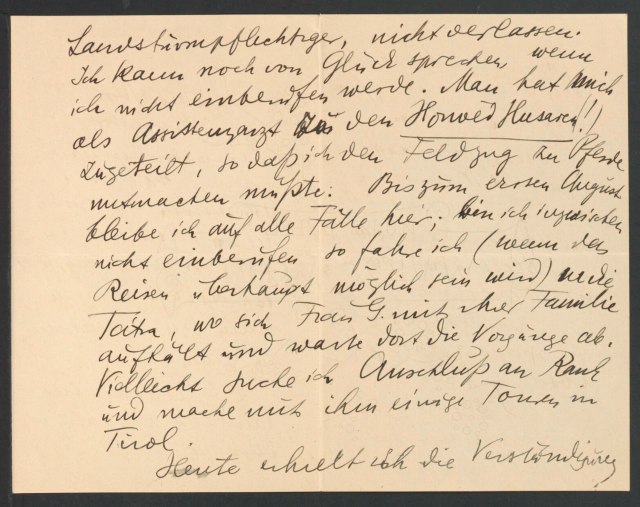 Landsturmpflichtiger, nicht verlassen.
Ich kann noch von Glück sprechen, wenn
ich nicht einberufen werde. Man hat mich
als Assistenzarzt zu den Honvéd Husaren (!!)
zugeteilt, so daß ich den Feldzug zu Pferde
mitmachen müßte. Bis zum ersten August
bleibe ich auf alle Fälle hier; bin ich inzwischen
nicht einberufen so fahre ich (wenn das
Reisen überhaupt möglich sein wird) in die
Tátra, wo sich Frau G. mit ihrer Familie
aufhält und warte dort die Vorgänge ab.
Vielleicht suche ich Anschluß an Rank
und mache mit ihm einige Touren in
Tirol.
Heute erhielt ich die Verständigung